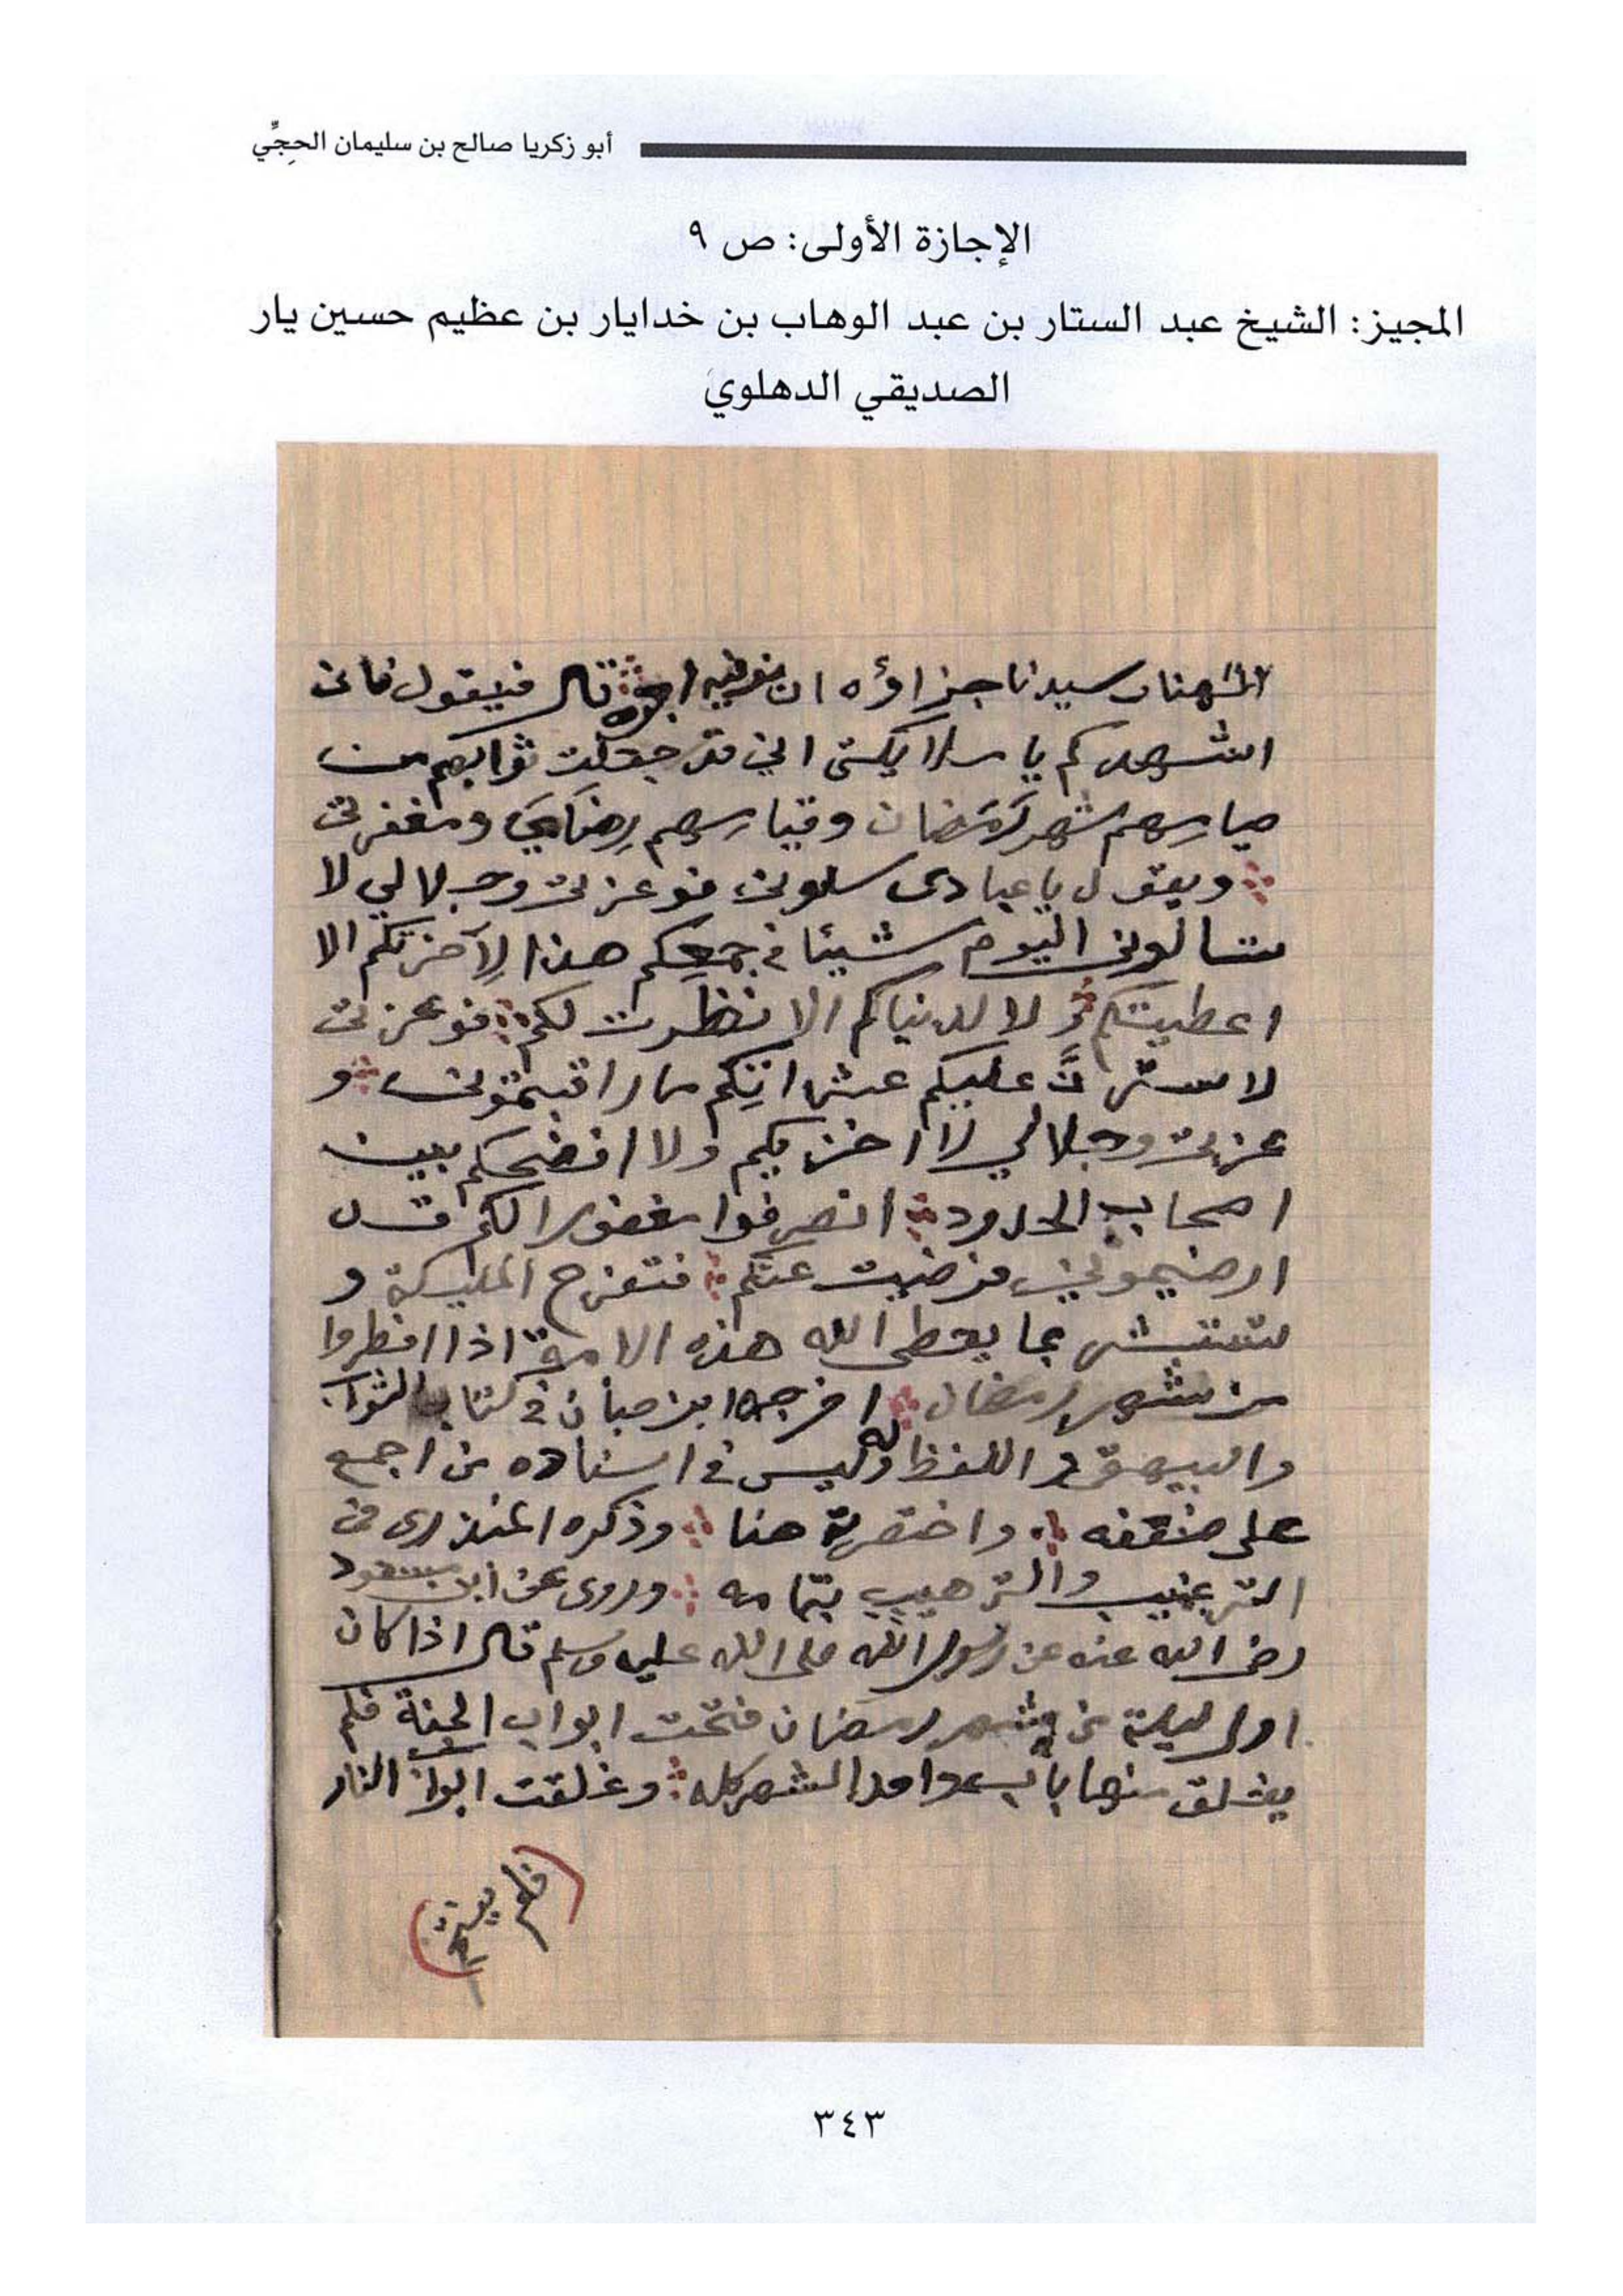 أبو زكريا صالح بن سليمان الحجِّي
الإجازة الأولى: ص ٩
المجيز: الشيخ عبد الستار بن عبد الوهاب بن خدايار بن عظيم حسين يار
الصديقي الدهلوي
سيدنا جزاؤه ان اجره قال فيقول فانى
اشهدكم يا ملايكتى اني قد جعلت ثوابهم من
صيامهم شهر رَمَضان وقيامهم رِضَايَ ومغفرتى
ويقول يا عبادى سلونى فوعزتى وجلالي لا
تسالونى اليوم شيئا في جمعكم هذا لِآخرتكم الا
اعطيتكم ولا لدنياكم الا نظرت لكم فوعزتى
لاسترنَّ عليكم عثراتِكم ما راقبتمونى و
عزتى وجلالي لا اخزيكم ولا افضحكم بين
اصحاب الحدود انصرفوا مغفورا لكم قد
ارضيتموني فرضيت عنكم فتفرح المليكة و
تستبشر بما يعطى الله هذه الامة اذا افطروا
من شهر رمضان اخرجه ابن حبان في كتاب الثواب
والبيهقى واللفظ له وليس في اسناده من اجمع
على ضعفه واختصرته هنا وذكره المنذرى فى
الترغيب والترهيب بتمامه وروى عن ابن مسعود
رضى الله عنه عن رسول الله صلى الله عليه وسلم قال اذا كان
اول ليلة من شهر رمضان فتحت ابواب الجنة فلم
يغلق منها باب الشهر كله وغلقت ابواب النار
٣٤٣